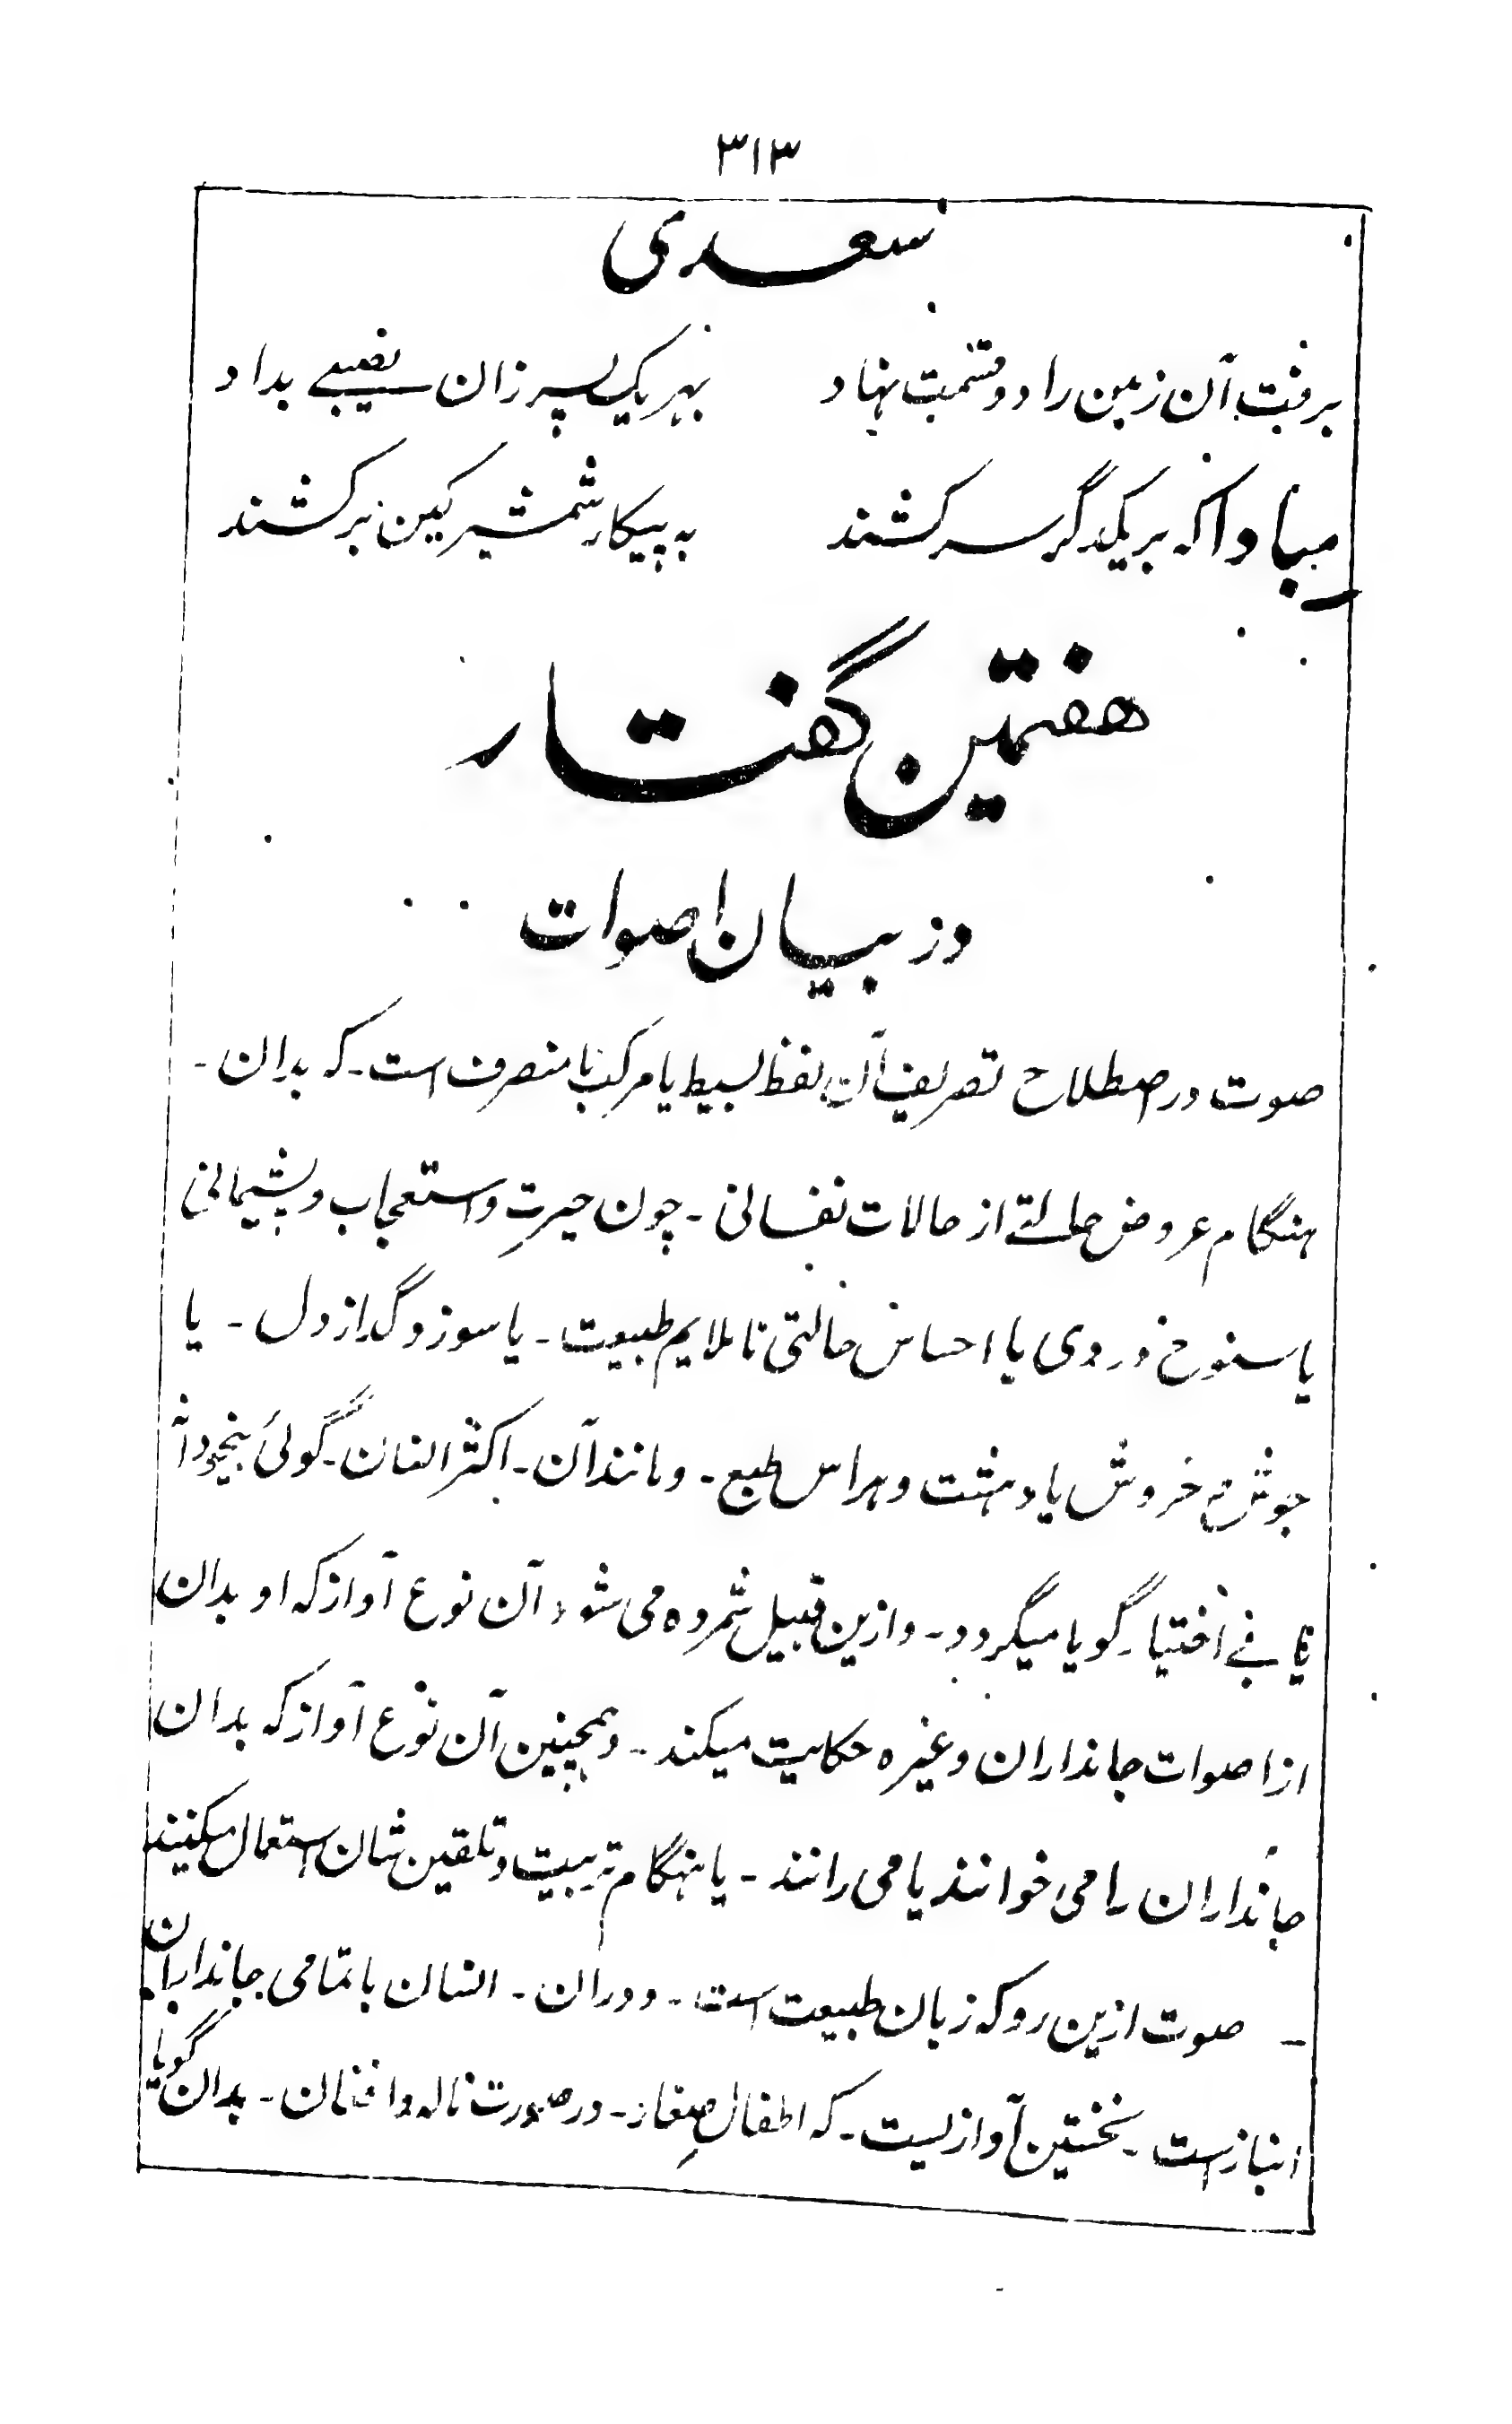 ۳۱۳
سعدی
برفت آن زمین را دو قسمت نهاد بهر یک پسر زان نصیبے بداد
مبادا که بر یکدگر سر کشند به پیکار شمشیر کین بر کشند
هفتمین گفتار
در بیان اصوات
صوت در اصطلاح تصریف آن لفظ بسیط یا مرکب نامنصرف است - که بدان -
هنگام عروض حالتے از حالات نفسانی - چون حیرت و استعجاب و پشیمانی
یا سنوح دردی یا احساس حالتی ناملایم طبیعت - یا سوز و گداز دل - یا
جوش و خروش یا دهشت و هراس طبع - و مانند آن - اکثر انسان - گوئی بیخودانه
یا بے اختیار گویا میگردد - و ازین قبیل شمرده می شود آن نوع آواز که او بدان
از اصوات جانداران و غیره حکایت میکند - و همچنین آن نوع آواز که بدان
جانداران را می خوانند یا می رانند - یا هنگام تربیت و تلقین شان استعمال میکنند
- صوت ازین رو که زبان طبیعت است - و دران - انسان با تمامی جانداران
انباز است - نخستین آوازیست - که اطفال صغار - در صورت ناله و افغان - بدان گویا